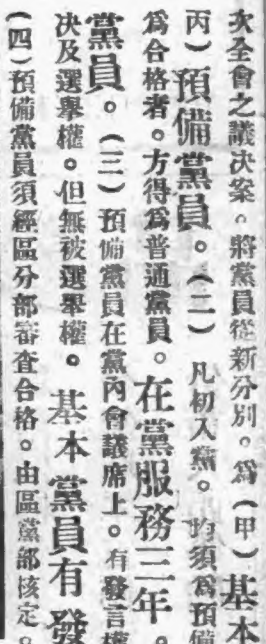 次全會之議決案。將黨員從新分別。爲（甲）基本
丙）預備黨員。（二）凡初入黨。均須爲預備
爲合格者。方得爲普通黨員。在黨服務三年。
黨員。（三）預備黨員在黨內會議席上。有發言權
決及選舉權。但無被選舉權。基本黨員有發
（四）預備黨員須經區分部審查合格。由區黨部核定。